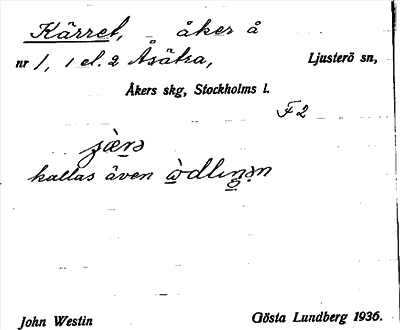 Kärret, åker å
nr 1, 1 el. 2 Åsätra, Ljusterö sn,
Åkers skg, Stockholms l.
F2
kallas även
John Westin Gösta Lundberg 1936.